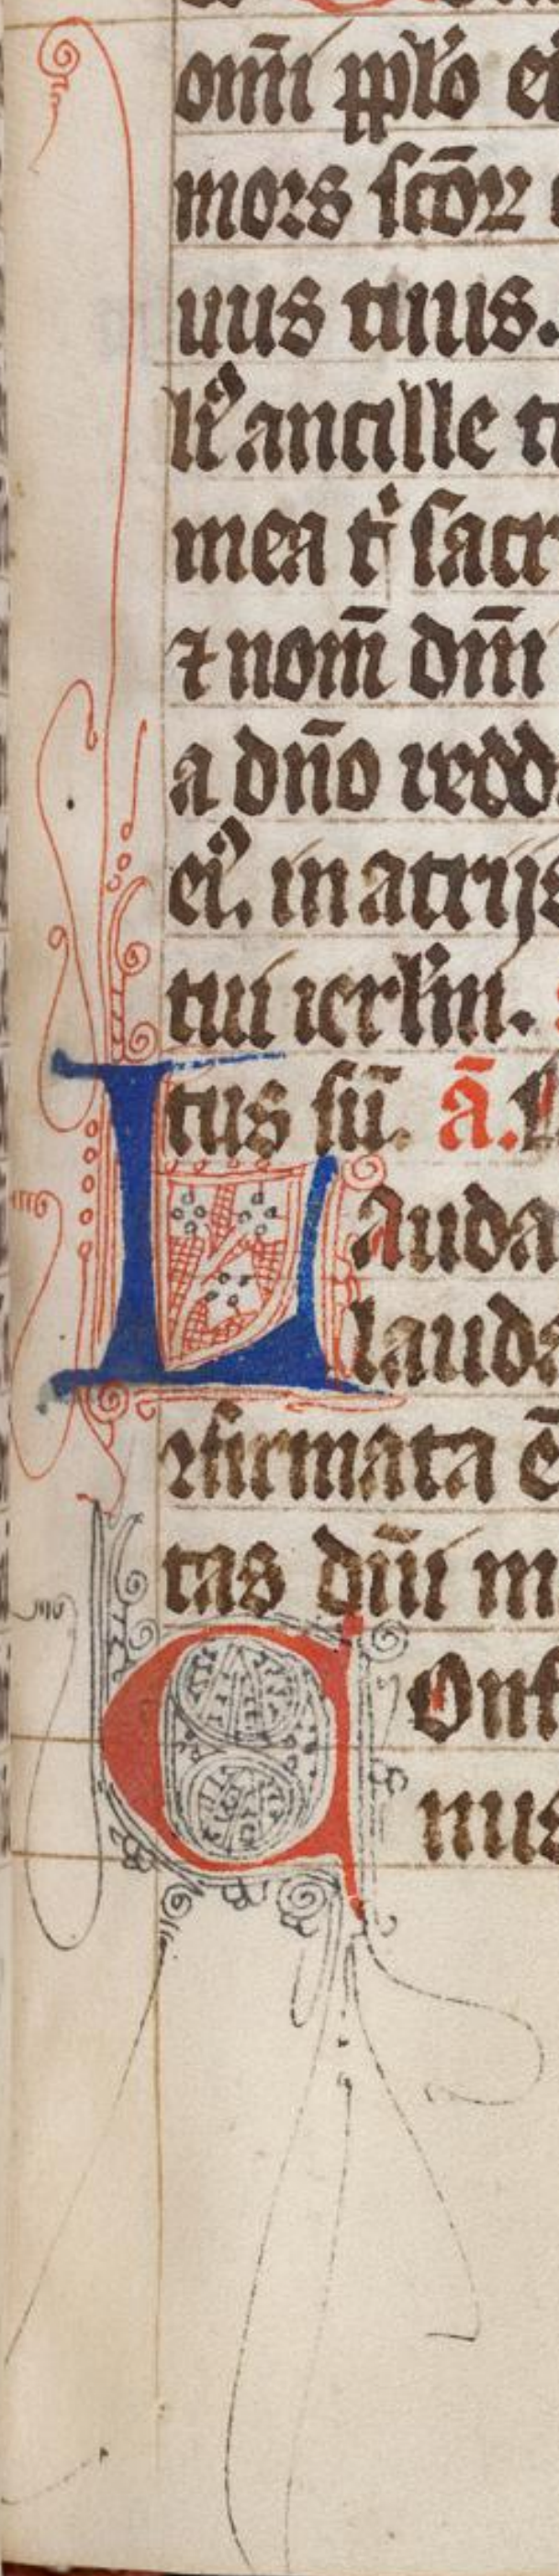 om̄i pp̄lo ei
mors sc̄oꝝ
uus tuus.
lꝰ ancille tu
mea tⁱ sacr
⁊ nom̄ dn̄i
a dn̄o redd
eiꝰ, in atrijs
tui ierlm̄.
tus sū. ā. L
Lauda
lauda
ↄfirmata ē
tas dn̄i m
Conf
nus